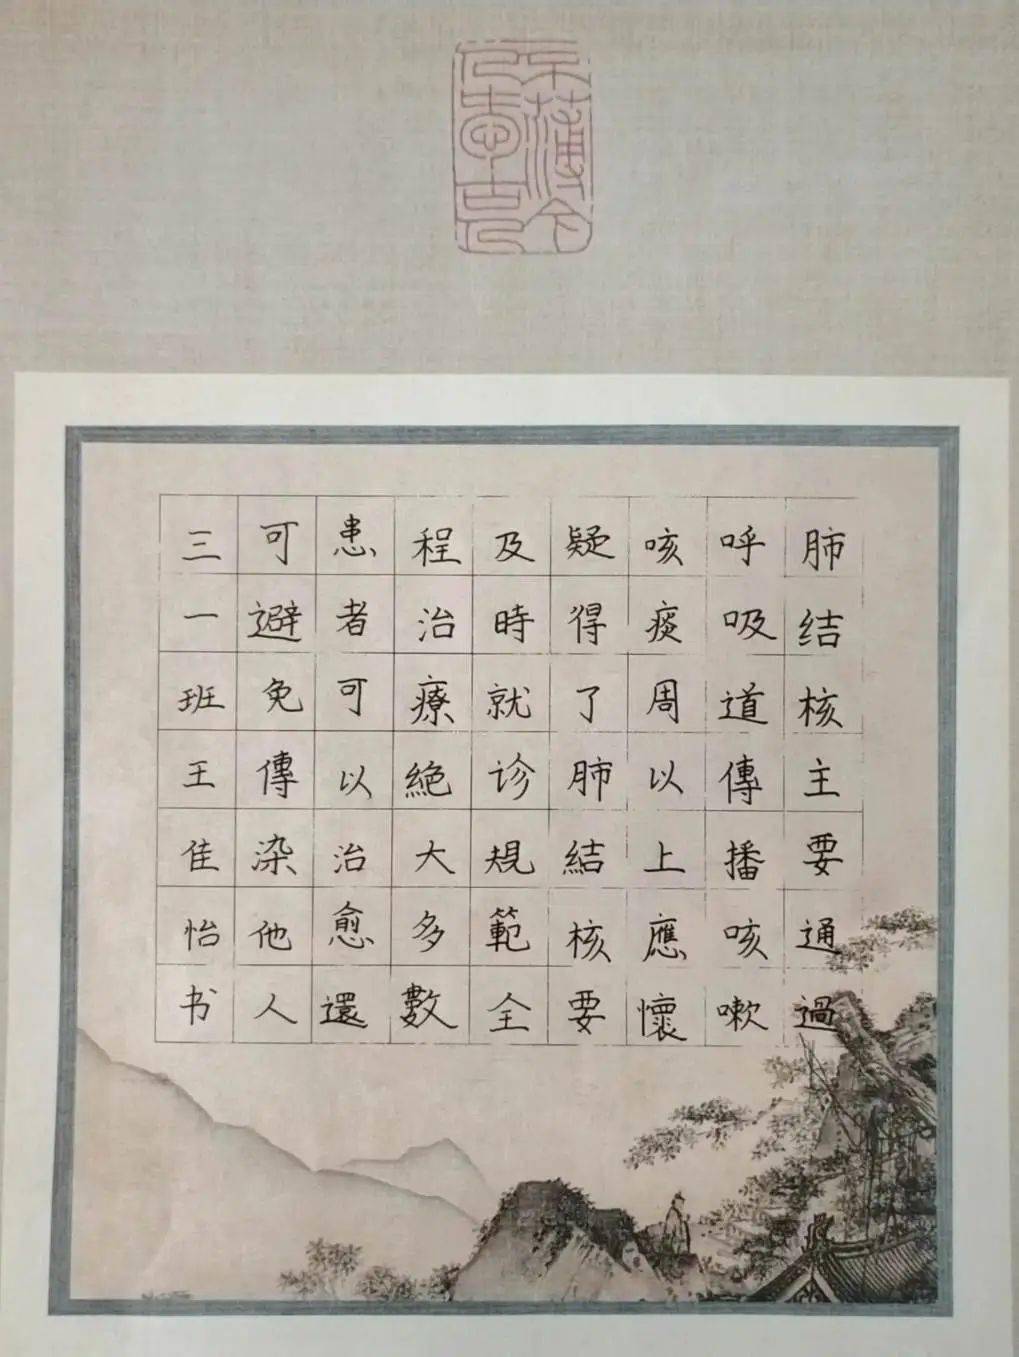 肺结核主要通過
呼吸道傳播咳嗽
咳痰周以上應懷
疑得了肺結核要
及時就诊規範全
程治療絶大多數
患者可以治愈還
可避免傳染他人
三一班王佳怡书